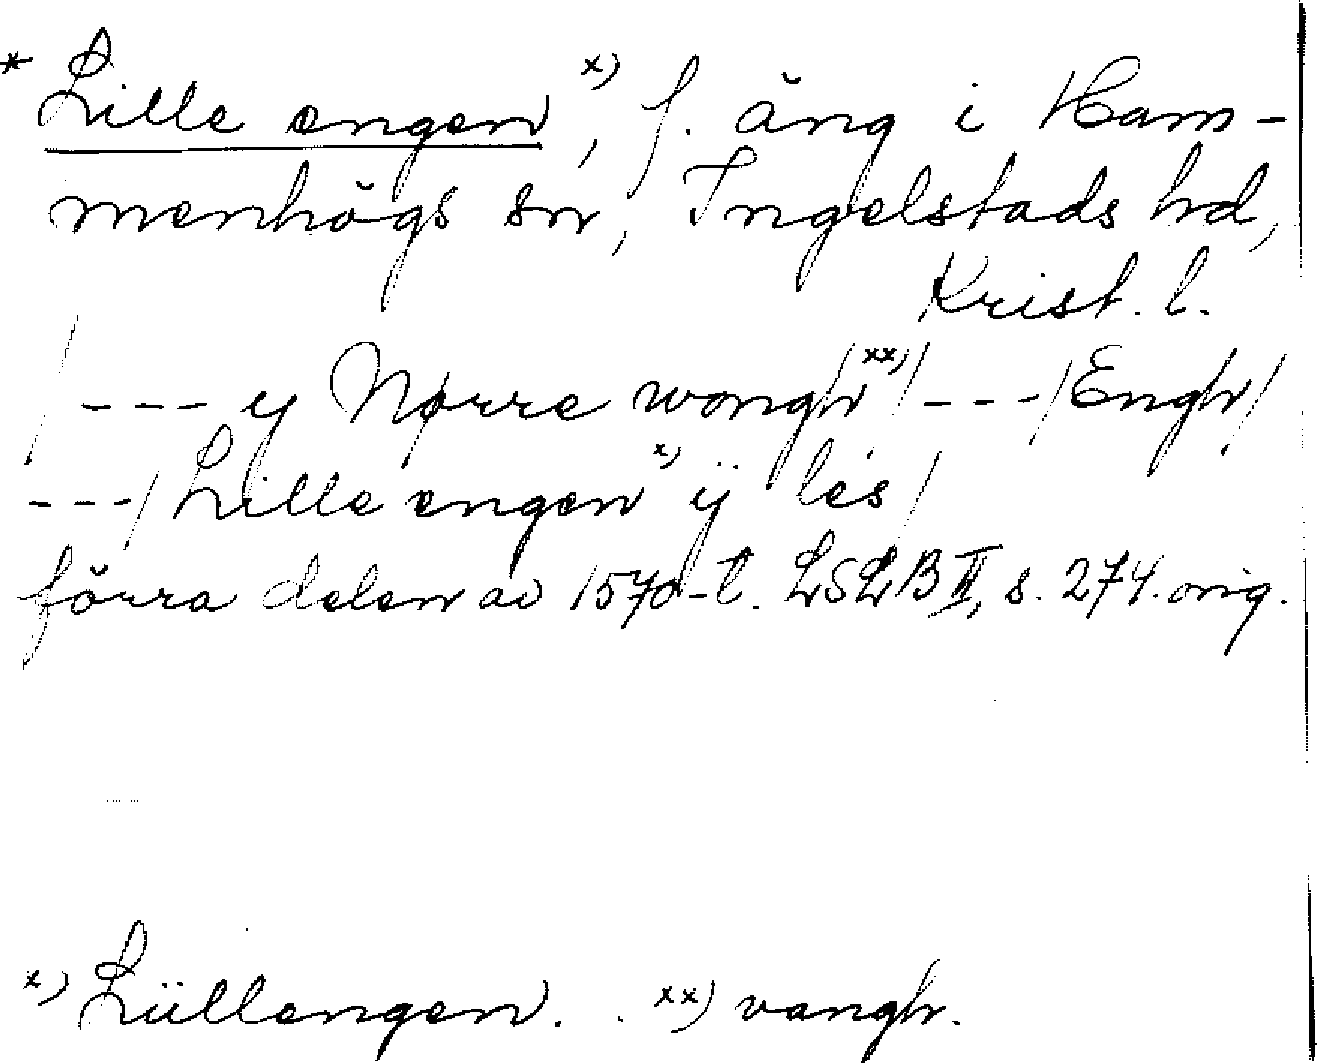 * Lille engen x), f. äng i Ham-
menhögs sn, Ingelstads hd,
Krist. l.
/ --- y Nørre wongh xx) / --- / Engh /
--- / Lille engen x) ÿ les /
förra delen av 1570-t. LSLB II, s. 274. orig.
x) Lüllengen. xx) vangh.